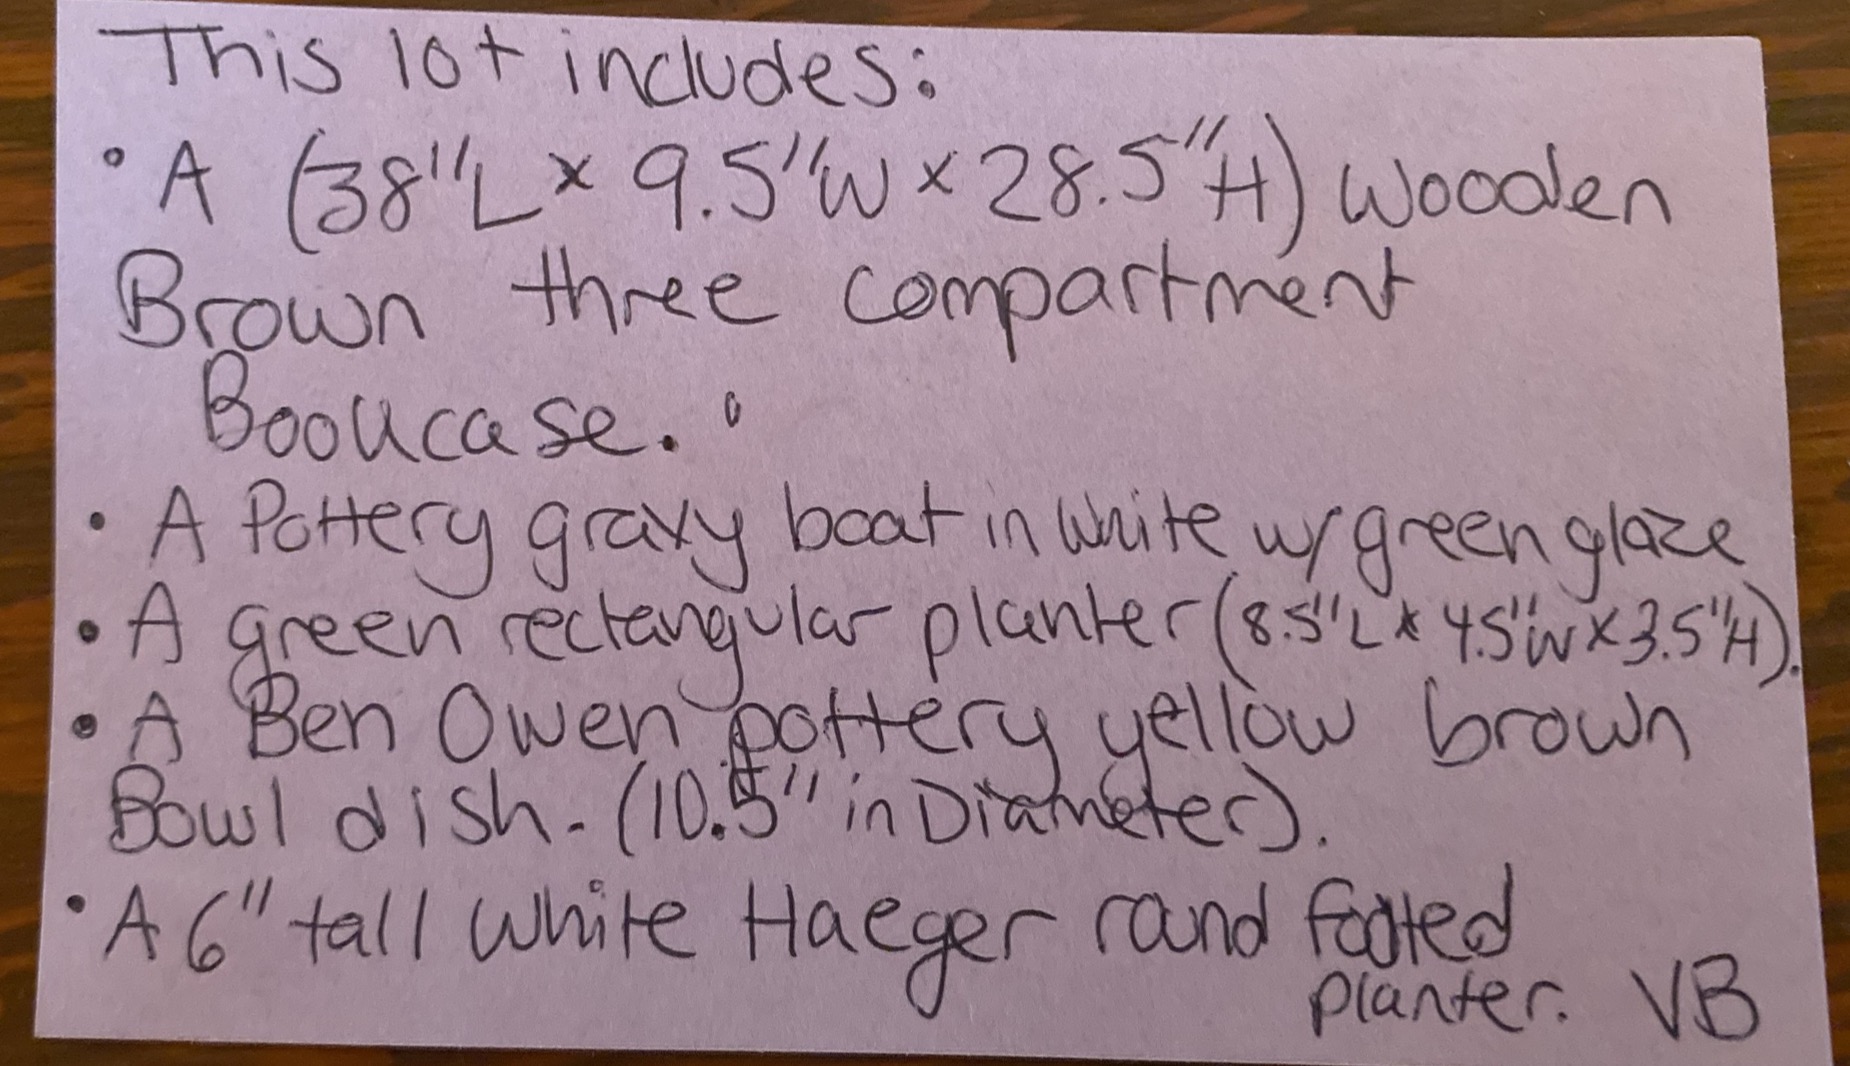 This lot includes:
• A (38"L x 9.5"W x 28.5"H) Wooden
Brown three compartment
Bookcase.
• A Pottery gravy boat in White w/ green glaze
• A green rectangular planter (8.5"L x 4.5"W x 3.5"H).
• A Ben Owen pottery yellow brown
Bowl dish. (10.5" in Diameter).
• A 6" tall White Haeger round footed
planter. VB